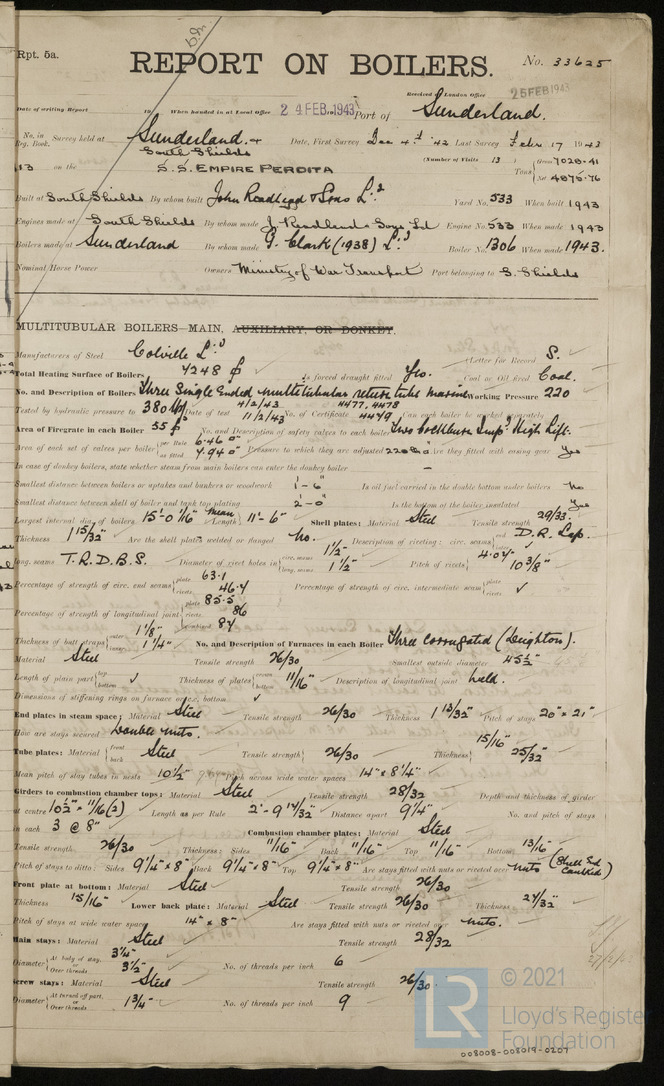 Rpt. 5a.
REPORT ON BOILERS.
No. 33625
Received at London Office 25 FEB 1943
Date of writing Report 19 When handed in at Local Office 24 FEB. 1943 Port of Sunderland.
No. in Reg. Book. Survey held at Sunderland. + South Shields Date, First Survey Dec 4th '42 Last Survey Feb 17 1943
13 on the S.S. EMPIRE PERDITA (Number of Visits 13) Tons Gross 7028.41 Net 4875.76
Built at South Shields By whom built John Readhead & Sons Ld Yard No. 533 When built 1943
Engines made at South Shields By whom made J. Readhead & Sons Ld Engine No. 533 When made 1943
Boilers made at Sunderland By whom made G. Clark (1938) Ld Boiler No. 1306 When made 1943.
Nominal Horse Power Owners Ministry of War Transport Port belonging to S. Shields
MULTITUBULAR BOILERS—MAIN, AUXILIARY, OR DONKEY.
Manufacturers of Steel Colville Ld (Letter for Record S.
Total Heating Surface of Boilers 7248 Is forced draught fitted Yes. Coal or Oil fired Coal.
No. and Description of Boilers Three Single Ended multitubular return tube Marine Working Pressure 220
Tested by hydraulic pressure to 380 Date of test 4/2/43 11/2/43 No. of Certificate 4477, 4478 4479 Can each boiler be worked separately
Area of Firegrate in each Boiler 55 No. and Description of safety valves to each boiler Two Cockburn Impd High Lift.
Area of each set of valves per boiler per Rule 6.46 as fitted 7.940 Pressure to which they are adjusted 220 Are they fitted with easing gear Yes
In case of donkey boilers, state whether steam from main boilers can enter the donkey boiler –
Smallest distance between boilers or uptakes and bunkers or woodwork 1'-6" Is oil fuel carried in the double bottom under boilers No
Smallest distance between shell of boiler and tank top plating 2'-0" Is the bottom of the boiler insulated Yes
Largest internal dia. of boilers 15'-0 1/16" mean Length 11'-6" Shell plates: Material Steel Tensile strength 29/33.
Thickness 1 15/32" Are the shell plates welded or flanged No. Description of riveting: circ. seams end D.R. Lap.
long. seams T.R.D.B.S. Diameter of rivet holes in circ. seams 1 1/2" long. seams 1 1/2" Pitch of rivets 4.04" 10 3/8"
Percentage of strength of circ. end seams plate 63.1 rivets 46.4 Percentage of strength of circ. intermediate seam plate rivets ✓
Percentage of strength of longitudinal joint plate 85.5 rivets 86 combined 87
Thickness of butt straps outer 1 1/8" inner 1 1/4" No. and Description of Furnaces in each Boiler Three corrugated (Deighton).
Material Steel Tensile strength 26/30 Smallest outside diameter 45 1/2"
Length of plain part top bottom ✓ Thickness of plates crown bottom 11/16" Description of longitudinal joint weld.
Dimensions of stiffening rings on furnace or c.c. bottom ✓
End plates in steam space: Material Steel Tensile strength 26/30 Thickness 1 13/32" Pitch of stays 20" × 21"
How are stays secured Double nuts.
Tube plates: Material front back Steel Tensile strength 26/30 Thickness 15/16" 25/32"
Mean pitch of stay tubes in nests 10 1/2" Pitch across wide water spaces 14" × 8 1/4"
Girders to combustion chamber tops: Material Steel Tensile strength 28/32 Depth and thickness of girder
at centre 10 1/2" × 11/16 (2) Length as per Rule 2'-9 17/32" Distance apart 9 1/4" No. and pitch of stays
in each 3 @ 8" Combustion chamber plates: Material Steel
Tensile strength 26/30 Thickness: Sides 11/16" Back 11/16" Top 11/16" Bottom 13/16
Pitch of stays to ditto: Sides 9 1/4" × 8" Back 9 1/4" × 8" Top 9 1/4" × 8" Are stays fitted with nuts or riveted over nuts (Shell End Caulked)
Front plate at bottom: Material Steel Tensile strength 26/30
Thickness 15/16" Lower back plate: Material Steel Tensile strength 26/30 Thickness 27/32"
Pitch of stays at wide water space 14" × 8" Are stays fitted with nuts or riveted over nuts.
Main stays: Material Steel Tensile strength 28/32
Diameter At body of stay, or Over threads 3 1/4" 3 1/2" No. of threads per inch 6
Screw stays: Material Steel Tensile strength 26/30
Diameter At turned off part, or Over threads 1 3/4" No. of threads per inch 9
LR © 2021
Lloyd's Register
Foundation
008008-008019-0207